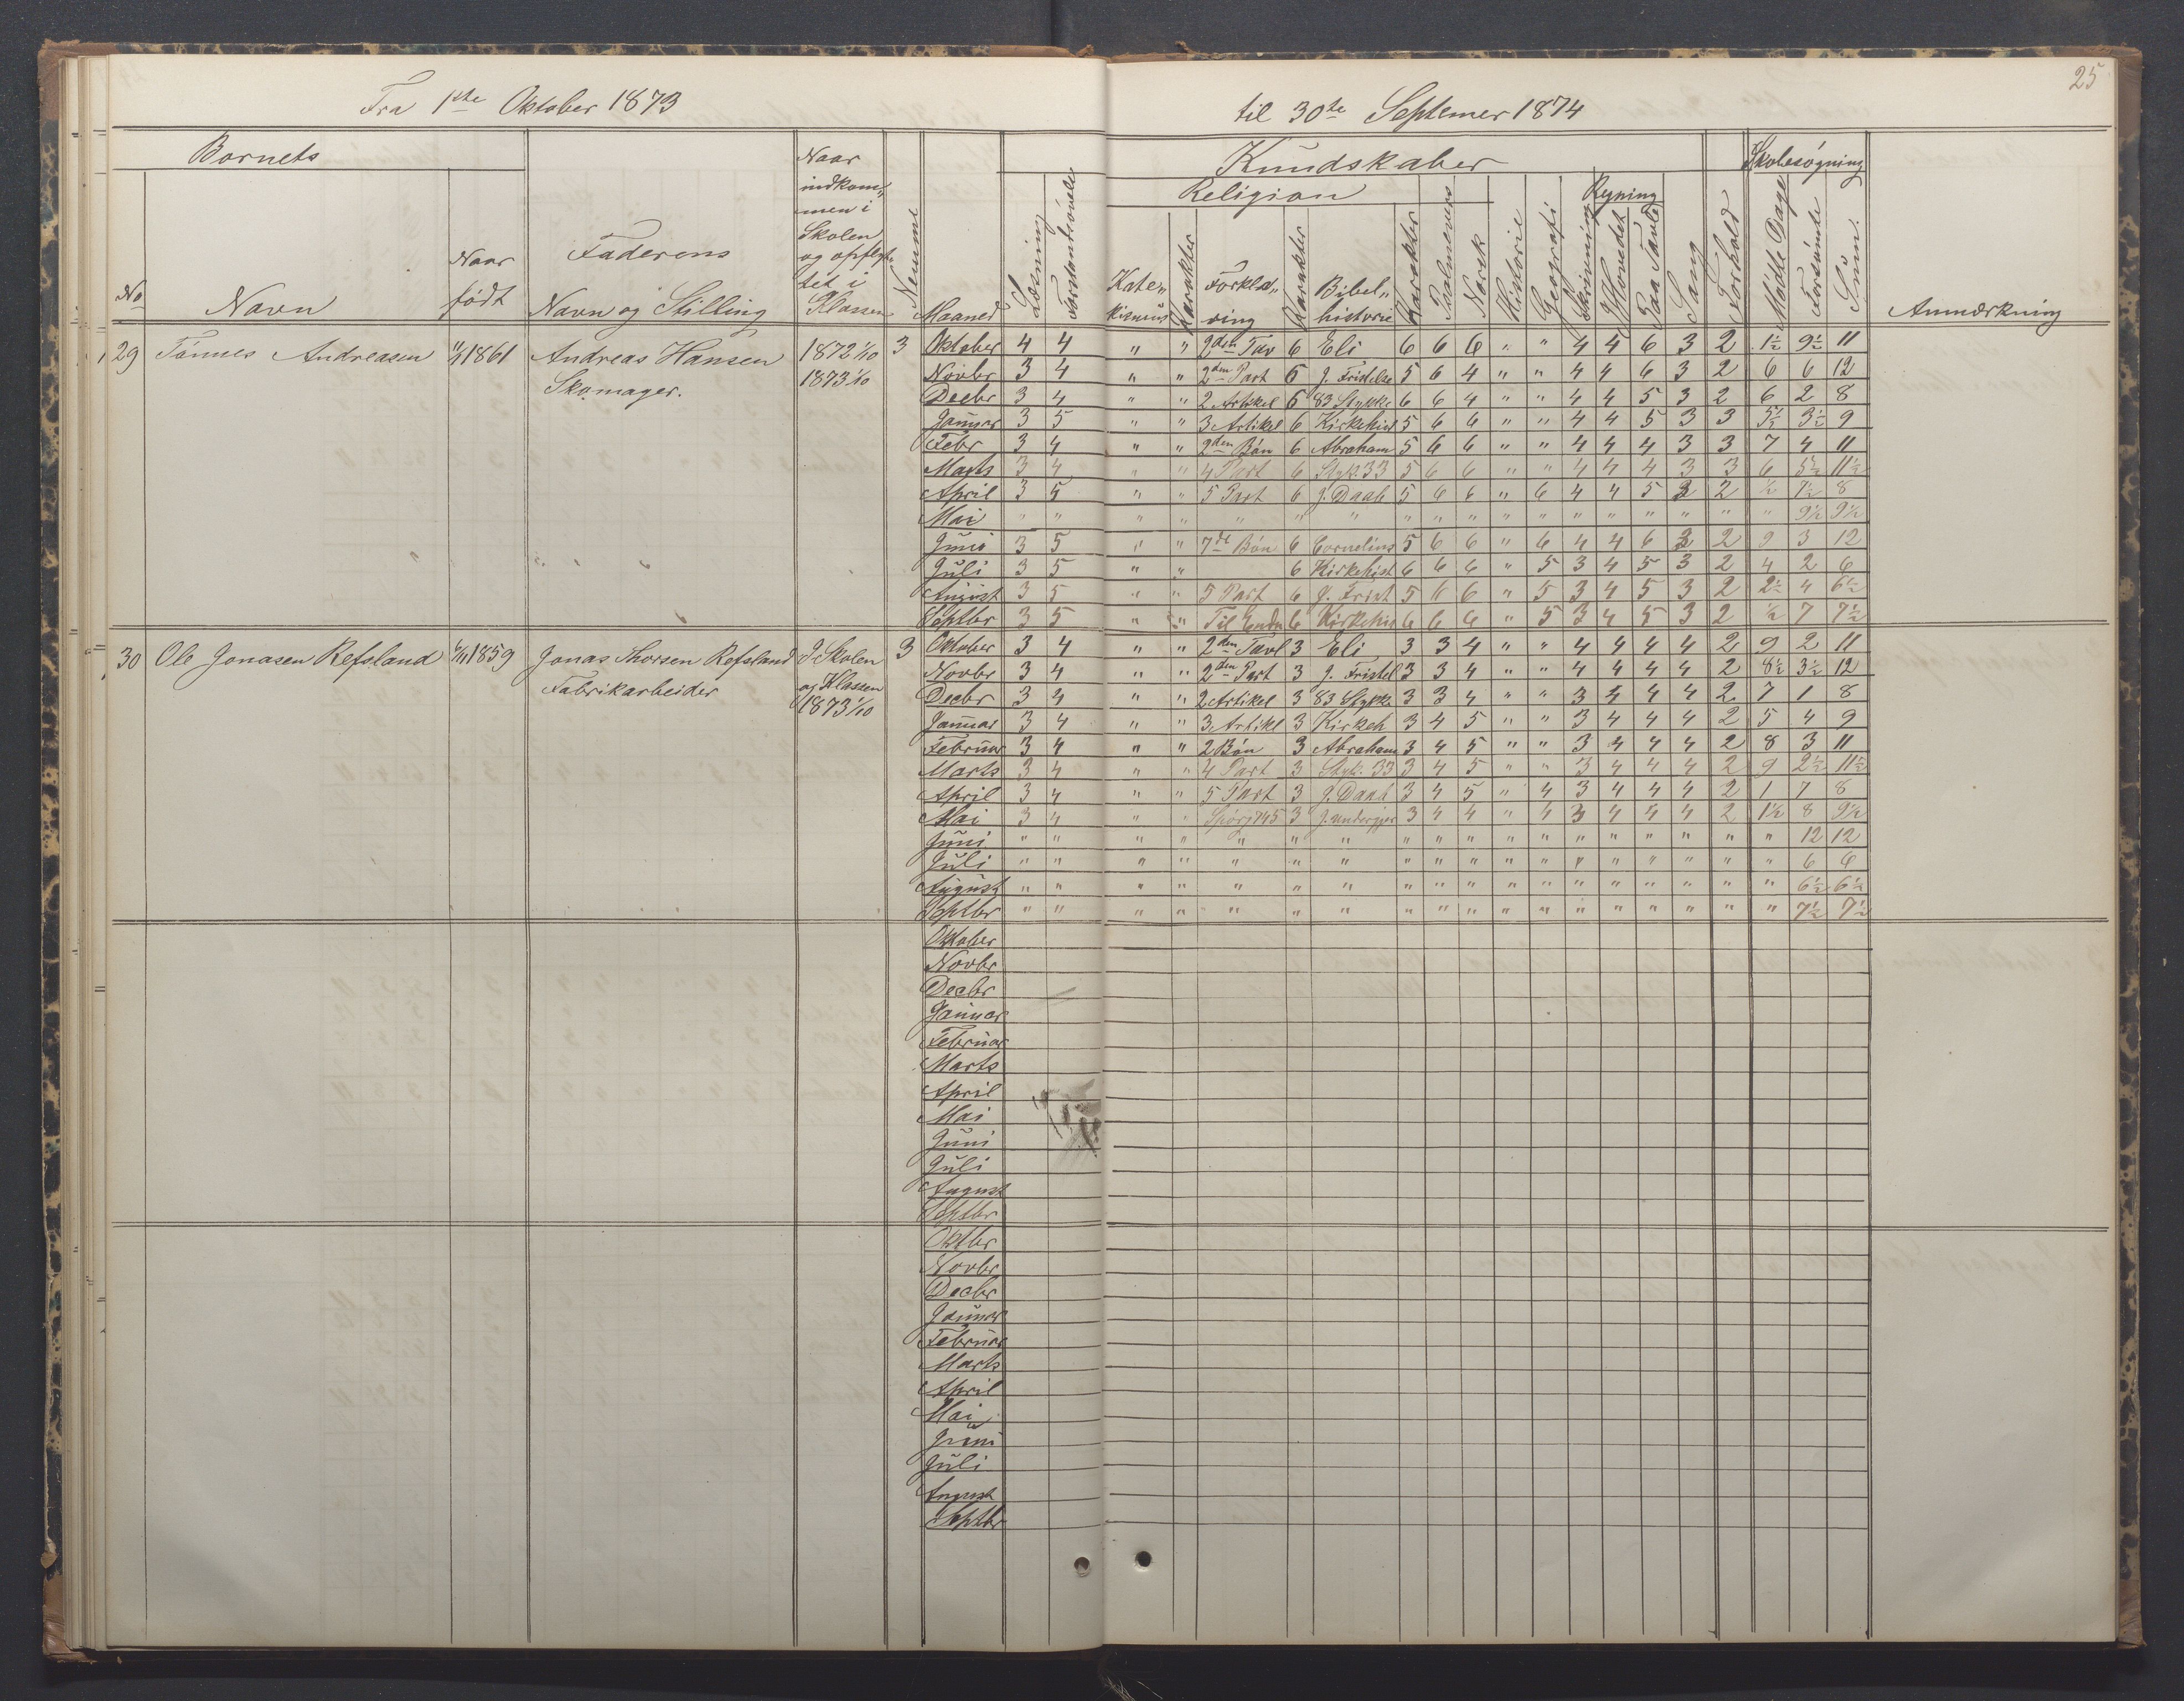 25
Fra 1ste Oktober 1873 til 30te Septemer 1874
Barnets
No
Navn
Naar født
Faderens
Navn og Stilling
Naar
indkom„
men i
Skolen
og opflyt„
tet i
Klassen
Nummer
Maaned
Læsning
Forstandsøvelse
Kundskaber
Religion
Kate„
kismus
Karakter
Forkla„
ring
Karakter
Bibel„
historie
Karakter
Psalmevers
Norsk
Historie
Geografi
Skrivning
Regning
I Hovedet
Paa Tavle
Sang
Forhold
Skolesøgning
Mødte Dage
Forsømte
Sum
Anmærkning
29 Tønnes Andreasen 11/1 1861 Andreas Hansen 1872 1/10 3 Oktober 4 4 " " 2den Tav 6 Eli 6 6 6 " " 4 4 6 3 2 1½ 9½ 11
Skomager. 1873 1/10 Novbr 3 4 " " 2den Part 6 J. Fristelse 5 6 4 " " 4 4 6 3 2 6 6 12
Decbr 3 4 " " 2 Artikel 6 83 Stykke 6 6 4 " " 4 4 5 3 2 6 2 8
Januar 3 5 " " 3 Artikel 6 Kirkehist 5 6 6 " " 4 4 5 3 3 5½ 3½ 9
Febr 3 4 " " 2den Bøn 6 Abraham 5 6 6 " " 4 4 4 3 3 7 4 11
Marts 3 4 " " 4 Part 6 Styk. 33 5 6 6 " " 4 4 4 3 3 6 5½ 11½
April 3 5 " " 5 Part 6 J. Daab 5 6 6 " 6 4 4 5 3 2 ½ 7½ 8
Mai " " " " " " " " " " " " " " " " " " 9½ 9½
Juni 3 5 " " 7de Bøn 6 Cornelius 5 6 6 " 6 4 4 6 3 2 9 3 12
Juli 3 5 " " 6 Kirkehist 6 6 6 " 5 3 4 5 3 2 4 2 6
August 3 5 " " 5 Part 6 J. Frist 5 6 6 " 5 3 4 5 3 2 2½ 4 6½
Septbr 3 5 " " Til Enden 6 Kirkehis 6 6 6 " 5 3 4 5 3 2 ½ 7 7½
30 Ole Jonasen Refsland 1859 Jonas Thorsen Refsland I Skolen 3 Oktober 3 4 " " 2den Tavl 3 Eli 3 3 4 " " 4 4 4 4 2 9 2 11
Fabrikarbeider og Klassen Novbr 3 4 " " 2den Part 3 J. Fristel 3 3 4 " " 4 4 4 4 2 8½ 3½ 12
1873 1/10 Decbr 3 4 " " 2 Artikel 3 83 Stykke 3 3 4 " " 3 4 4 4 2 7 1 8
Januar 3 4 " " 3 Artikl 3 Kirkeh 3 4 5 " " 3 4 4 4 2 5 4 9
Februar 3 4 " " 2 Bøn 3 Abraham 3 4 5 " " 3 4 4 4 2 8 3 11
Marts 3 4 " " 4 Part 3 Styk. 33 3 4 5 " " 3 4 4 4 2 9 2½ 11½
April 3 4 " " 5 Part 3 J. Daab 3 4 5 " 4 3 4 4 4 2 1 7 8
Mai 3 4 " " Spørj 745 3 3 4 4 " 4 3 4 4 4 2 1½ 8 9½
Juni " " " " " " " " " " " " " " " " " " 12 12
Juli " " " " " " " " " " " " " " " " " " 6 6
August " " " " " " " " " " " " " " " " " " 6½ 6½
Septbr " " " " " " " " " " " " " " " " " " 7½ 7½
Oktober
Novbr
Decbr
Januar
Februar
Marts
April
Mai
Juni
Juli
August
Septbr
Oktbr
Novbr
Decbr
Januar
Februar
Marts
April
Mai
Juni
Juli
August
Septbr